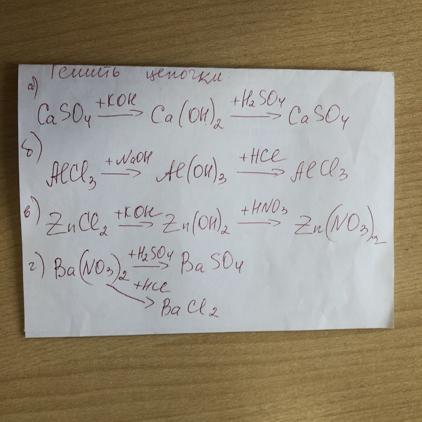 Решить цепочки
а) CaSO4 +KOH → Ca(OH)2 +H2SO4 → CaSO4
б) AlCl3 +NaOH → Al(OH)3 +HCl → AlCl3
в) ZnCl2 +KOH → Zn(OH)2 +HNO3 → Zn(NO3)2
г) Ba(NO3)2 +H2SO4 → BaSO4
+HCl → BaCl2